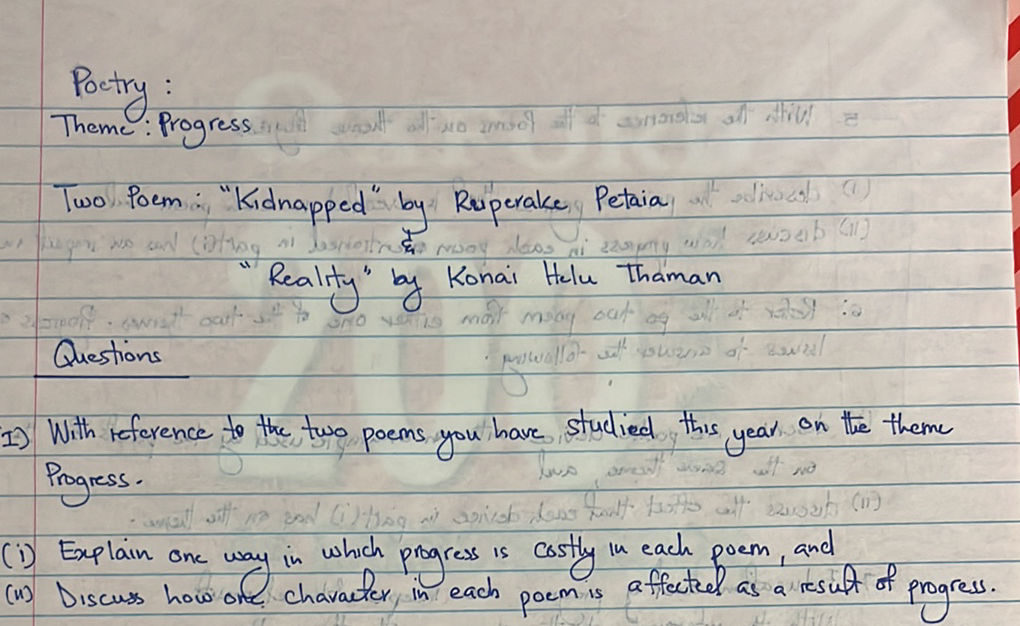 Poetry :
Theme : Progress
Two Poem : "Kidnapped" by Ruperake Petaia
&
"Reality" by Konai Helu Thaman
Questions
I) With reference to the two poems you have studied this year on the theme
Progress.
(i) Explain one way in which progress is costly in each poem, and
(ii) Discuss how one character in each poem is affected as a result of progress.